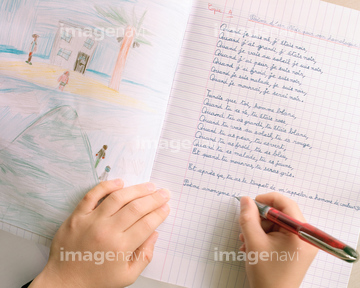 Quand je suis né, j'étais noir,
Quand j'ai grandi, j'étais noir,
Quand je vais au soleil, je suis noir,
Quand j'ai peur, je suis noir,
Quand j'ai froid, je suis noir,
Quand je suis malade, je suis noir,
Quand je mourrai, je serai noir.
Tandis que toi, homme blanc,
Quand tu es né, tu étais rose,
Quand tu as grandi, tu étais blanc,
Quand tu vas au soleil, tu es rouge,
Quand tu as peur, tu es vert,
Quand tu es malade, tu es jaune,
Et quand tu mourras, tu seras gris.
Et après ça, tu as le toupet de m'appeler « homme de couleur »
imagenavi
imagenavi
imagenavi
imagenavi
imagenavi